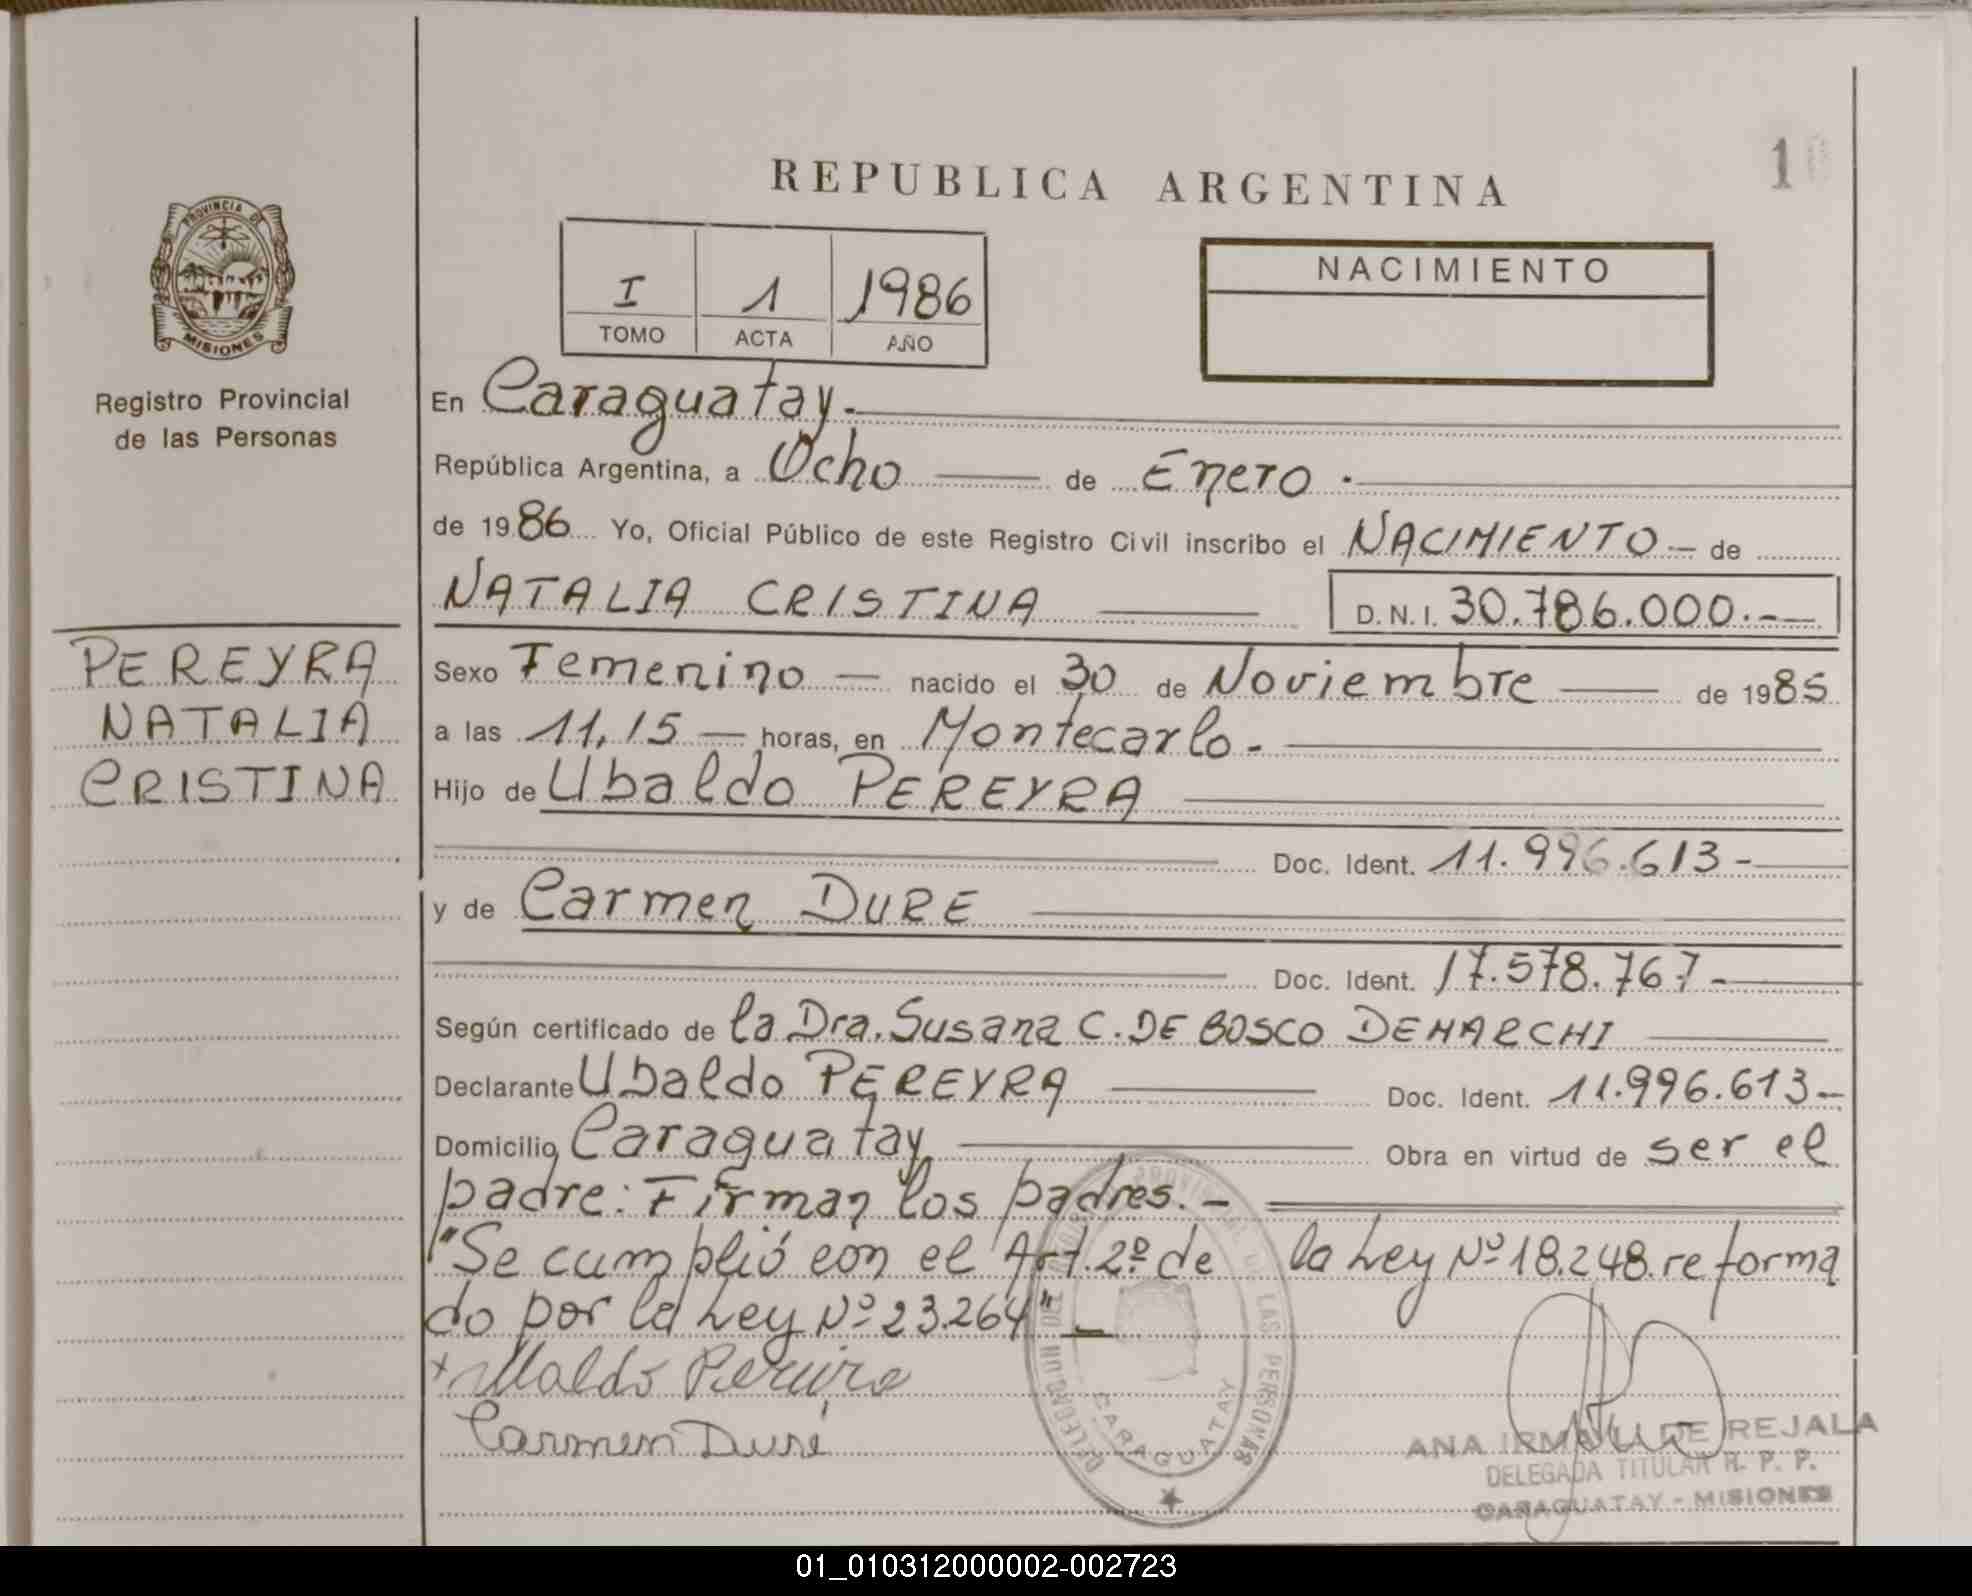 1
REPUBLICA ARGENTINA
PROVINCIA DE
MISIONES
Registro Provincial
de las Personas
I 1 1986
TOMO ACTA AÑO
NACIMIENTO
En Caraguatay.
República Argentina, a Ocho de Enero.
de 1986 Yo, Oficial Público de este Registro Civil inscribo el NACIMIENTO de
NATALIA CRISTINA D.N.I. 30.786.000.-
PEREYRA
NATALIA
CRISTINA
Sexo Femenino nacido el 30 de Noviembre de 1985
a las 11,15 horas, en Montecarlo.
Hijo de Ubaldo PEREYRA
Doc. Ident. 11.996.613-
y de Carmen DURE
Doc. Ident. 17.578.767-
Según certificado de la Dra. Susana C. DE BOSCO DEMARCHI
Declarante Ubaldo PEREYRA Doc. Ident. 11.996.613-
Domicilio Caraguatay Obra en virtud de ser el
padre: Firman los padres.-
"Se cumplió con el Art. 2º de la Ley Nº 18.248. reforma
do por la Ley Nº 23.264"
Carmen Duré
CARAGUATAY
ANA IRMA DE REJALA
DELEGADA TITULAR R. P. P.
CARAGUATAY - MISIONES
01_010312000002-002723